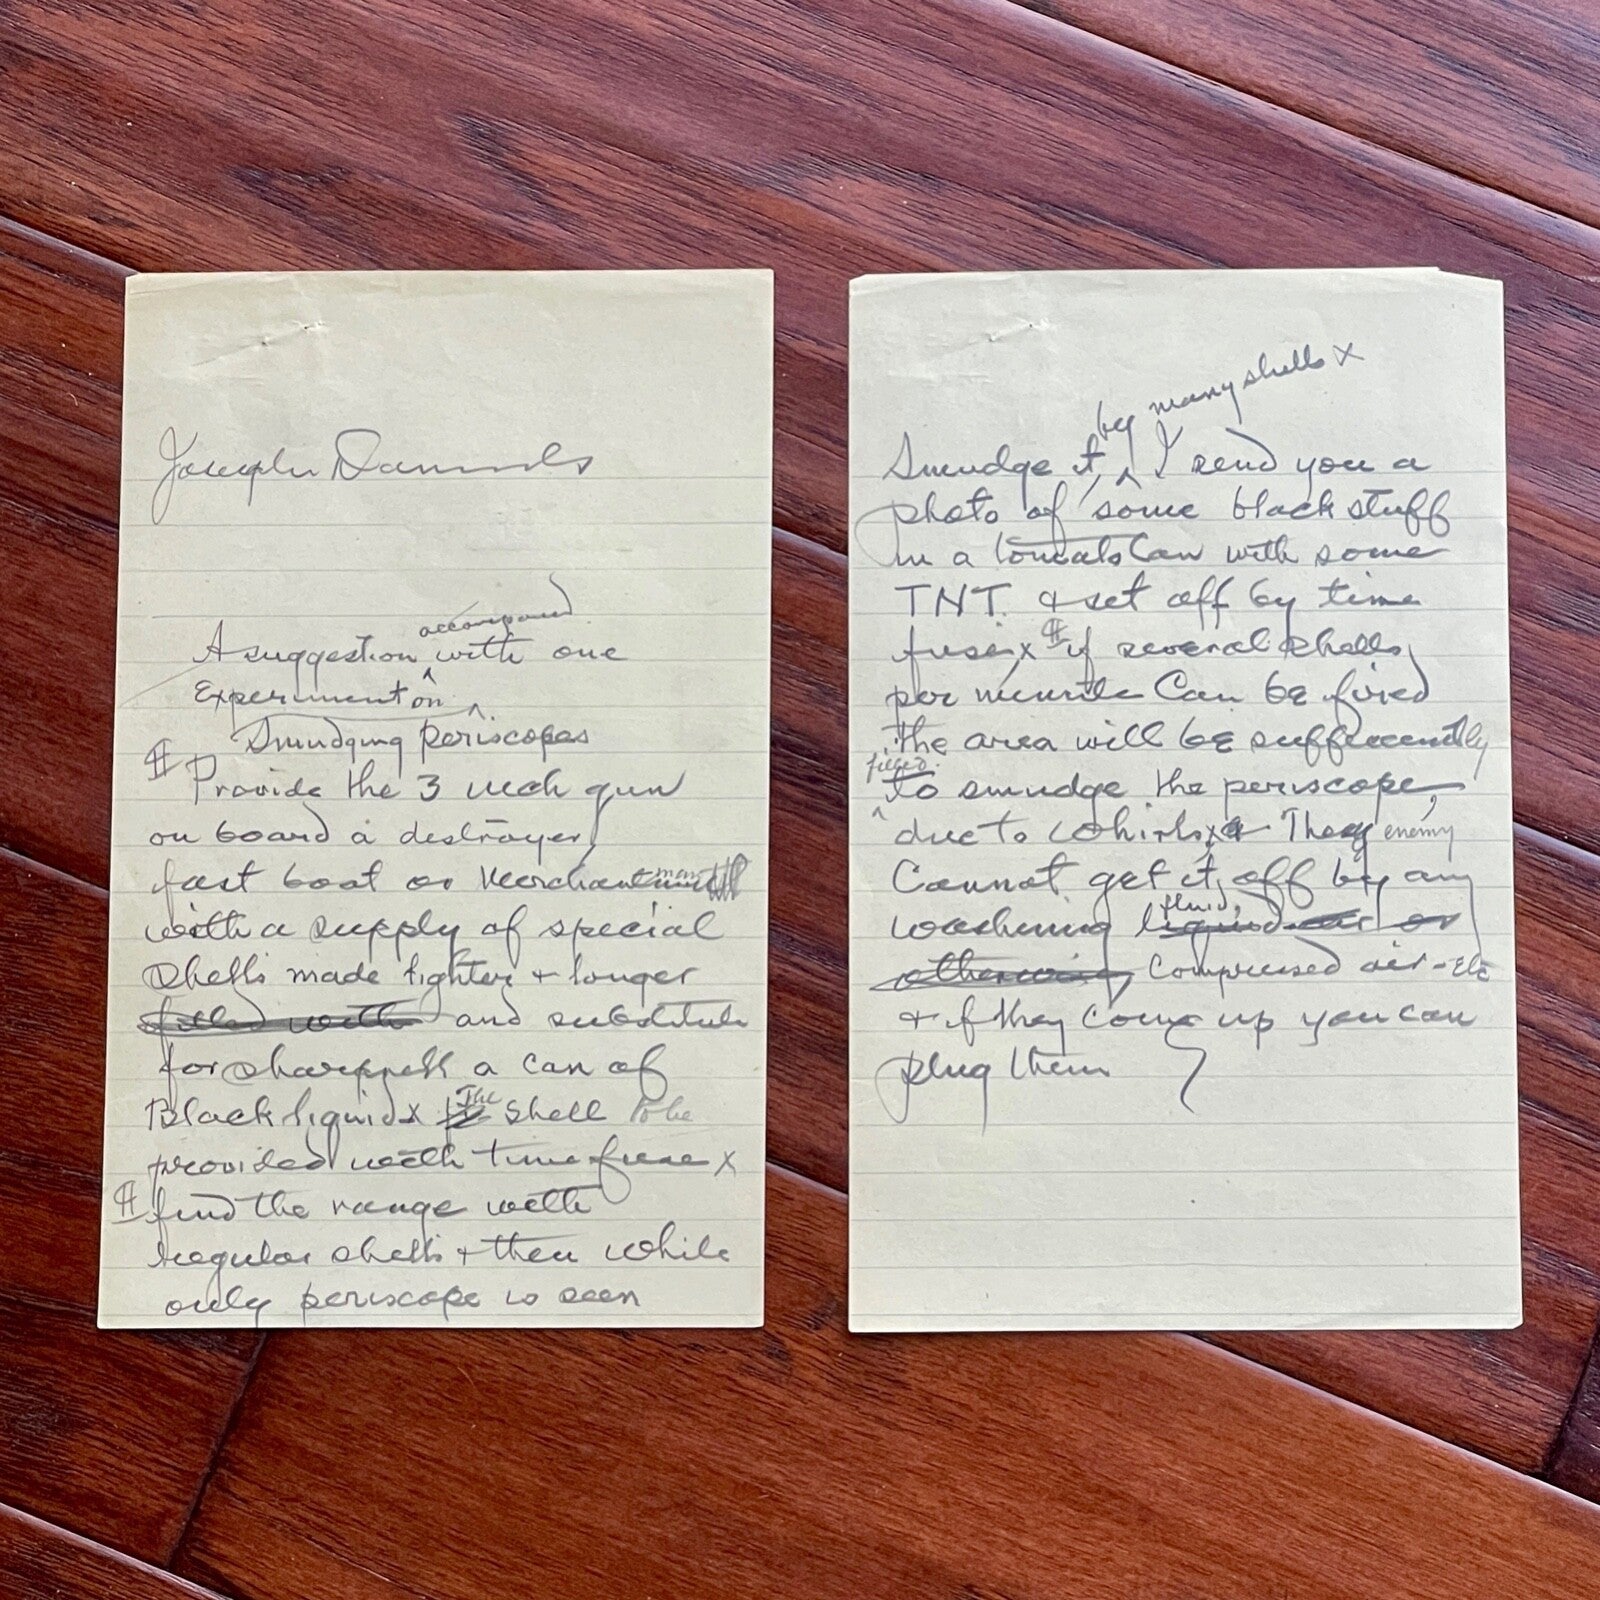 Joseph Daniels
accompanied
A suggestion with one
Experiment on
Smudging periscopes
¶ Provide the 3 inch gun
on board a destroyer
fast boat or Merchantman
with a supply of special
Shells made lighter + longer
filled with and substitute
for sharpnell a can of
Black liquid x The Shell to be
provided with time fuse x
¶ find the range with
regular shells + then while
only periscope is seen
by many shells x
Smudge it, I send you a
photo of some black stuff
in a tomato Can with some
TNT. & set off by time
fuse x ¶ if several shells
per minute Can be fired
the area will be sufficiently
filled
to smudge the periscope,
due to whirls x They enemy
Cannot get it off by any
fluid,
washing liquid air or
otherwise compressed air - Etc
+ if they come up you can
plug them